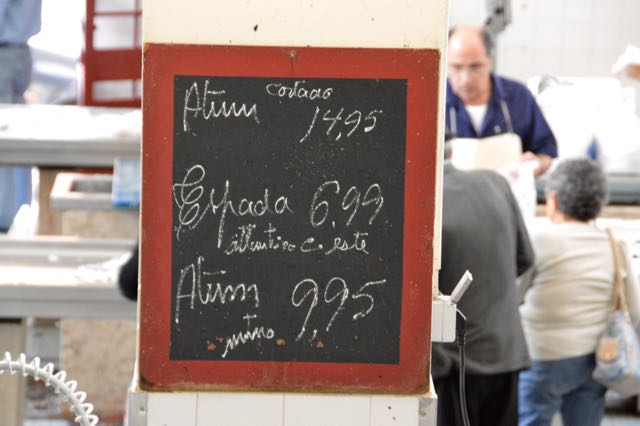 Atum cortado
14,95
Espada 6,99
atlantico c. este
Atum 9,95